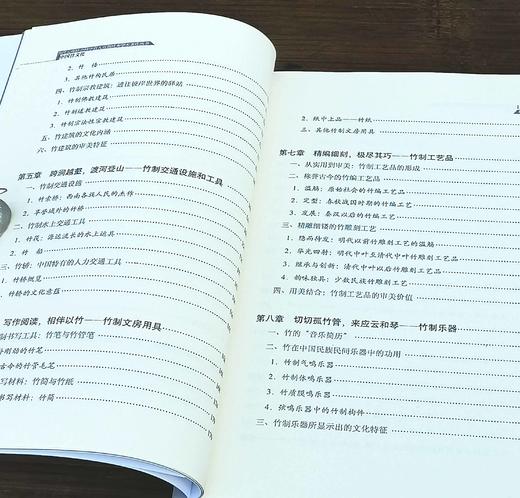 中国竹文化
2. 竹楼
3. 其他竹构民居
四、竹制宗教建筑：通往彼岸世界的驿站
1. 竹制佛教建筑
2. 竹制道教建筑
3. 竹制宗法性宗教建筑
五、竹建筑的文化内涵
六、竹建筑的审美特征
第五章 跨涧越壑，渡河登山——竹制交通设施和工具
一、竹制交通设施
1. 竹索桥：西南各族人民的杰作
2. 竹桥
二、竹制水上交通工具
1. 竹筏：源远流长的水上运具
2. 竹船
三、竹轿：中国特有的人力交通工具
1. 竹轿概览
2. 竹轿的文化意蕴
写作阅读，相伴以竹——竹制文房用具
制书写工具：竹笔与竹管笔
古今的竹管毛笔
写材料：竹简与竹纸
书写材料：竹简
2. 纸中上品——竹纸
三、其他竹制文房用具
第七章 精编细刻，极尽其巧——竹制工艺品
一、从实用到审美：竹制工艺品的形成
二、称誉古今的竹编工艺品
1. 滥觞：原始社会的竹编工艺品
2. 定型：春秋战国时期的竹编工艺品
3. 发展：秦汉以后的竹编工艺品
三、精雕细镂的竹雕刻工艺
1. 隐而待发：明代以前竹雕刻工艺的滥觞
2. 华光四射：明代中叶至清代中叶的竹雕刻工艺
3. 继承与创新：清代中叶以后竹雕刻工艺
4. 韵味独具：少数民族竹雕刻工艺
四、用美结合：竹制工艺品的审美价值
第八章 切切孤竹管，来应云和琴——竹制乐器
一、竹的“音乐简历”
二、竹在中国民族民间乐器中的功用
1. 竹制气鸣乐器
2. 竹制体鸣乐器
3. 竹制膜鸣乐器
4. 弦鸣乐器中的竹制构件
三、竹制乐器所显示出的文化特征